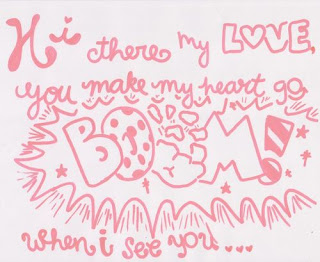 Hi there my LOVE,
you make my heart go
BOOM!
when i see you...